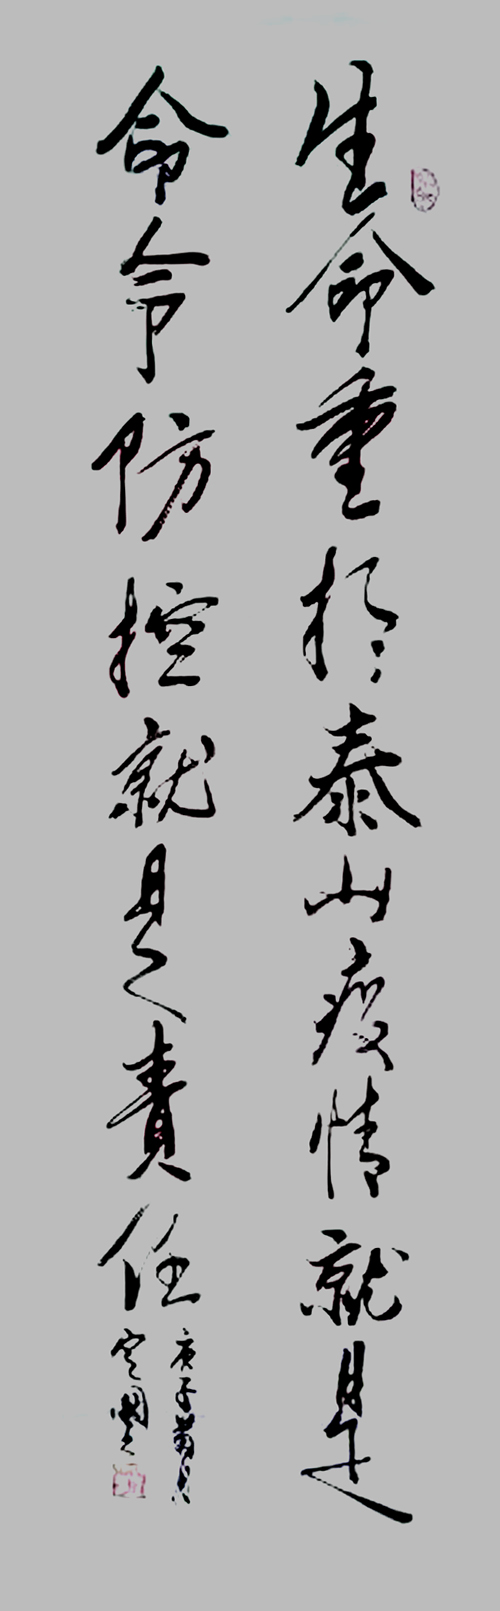 生命重於泰山疫情就是
命令防控就是責任
庚子